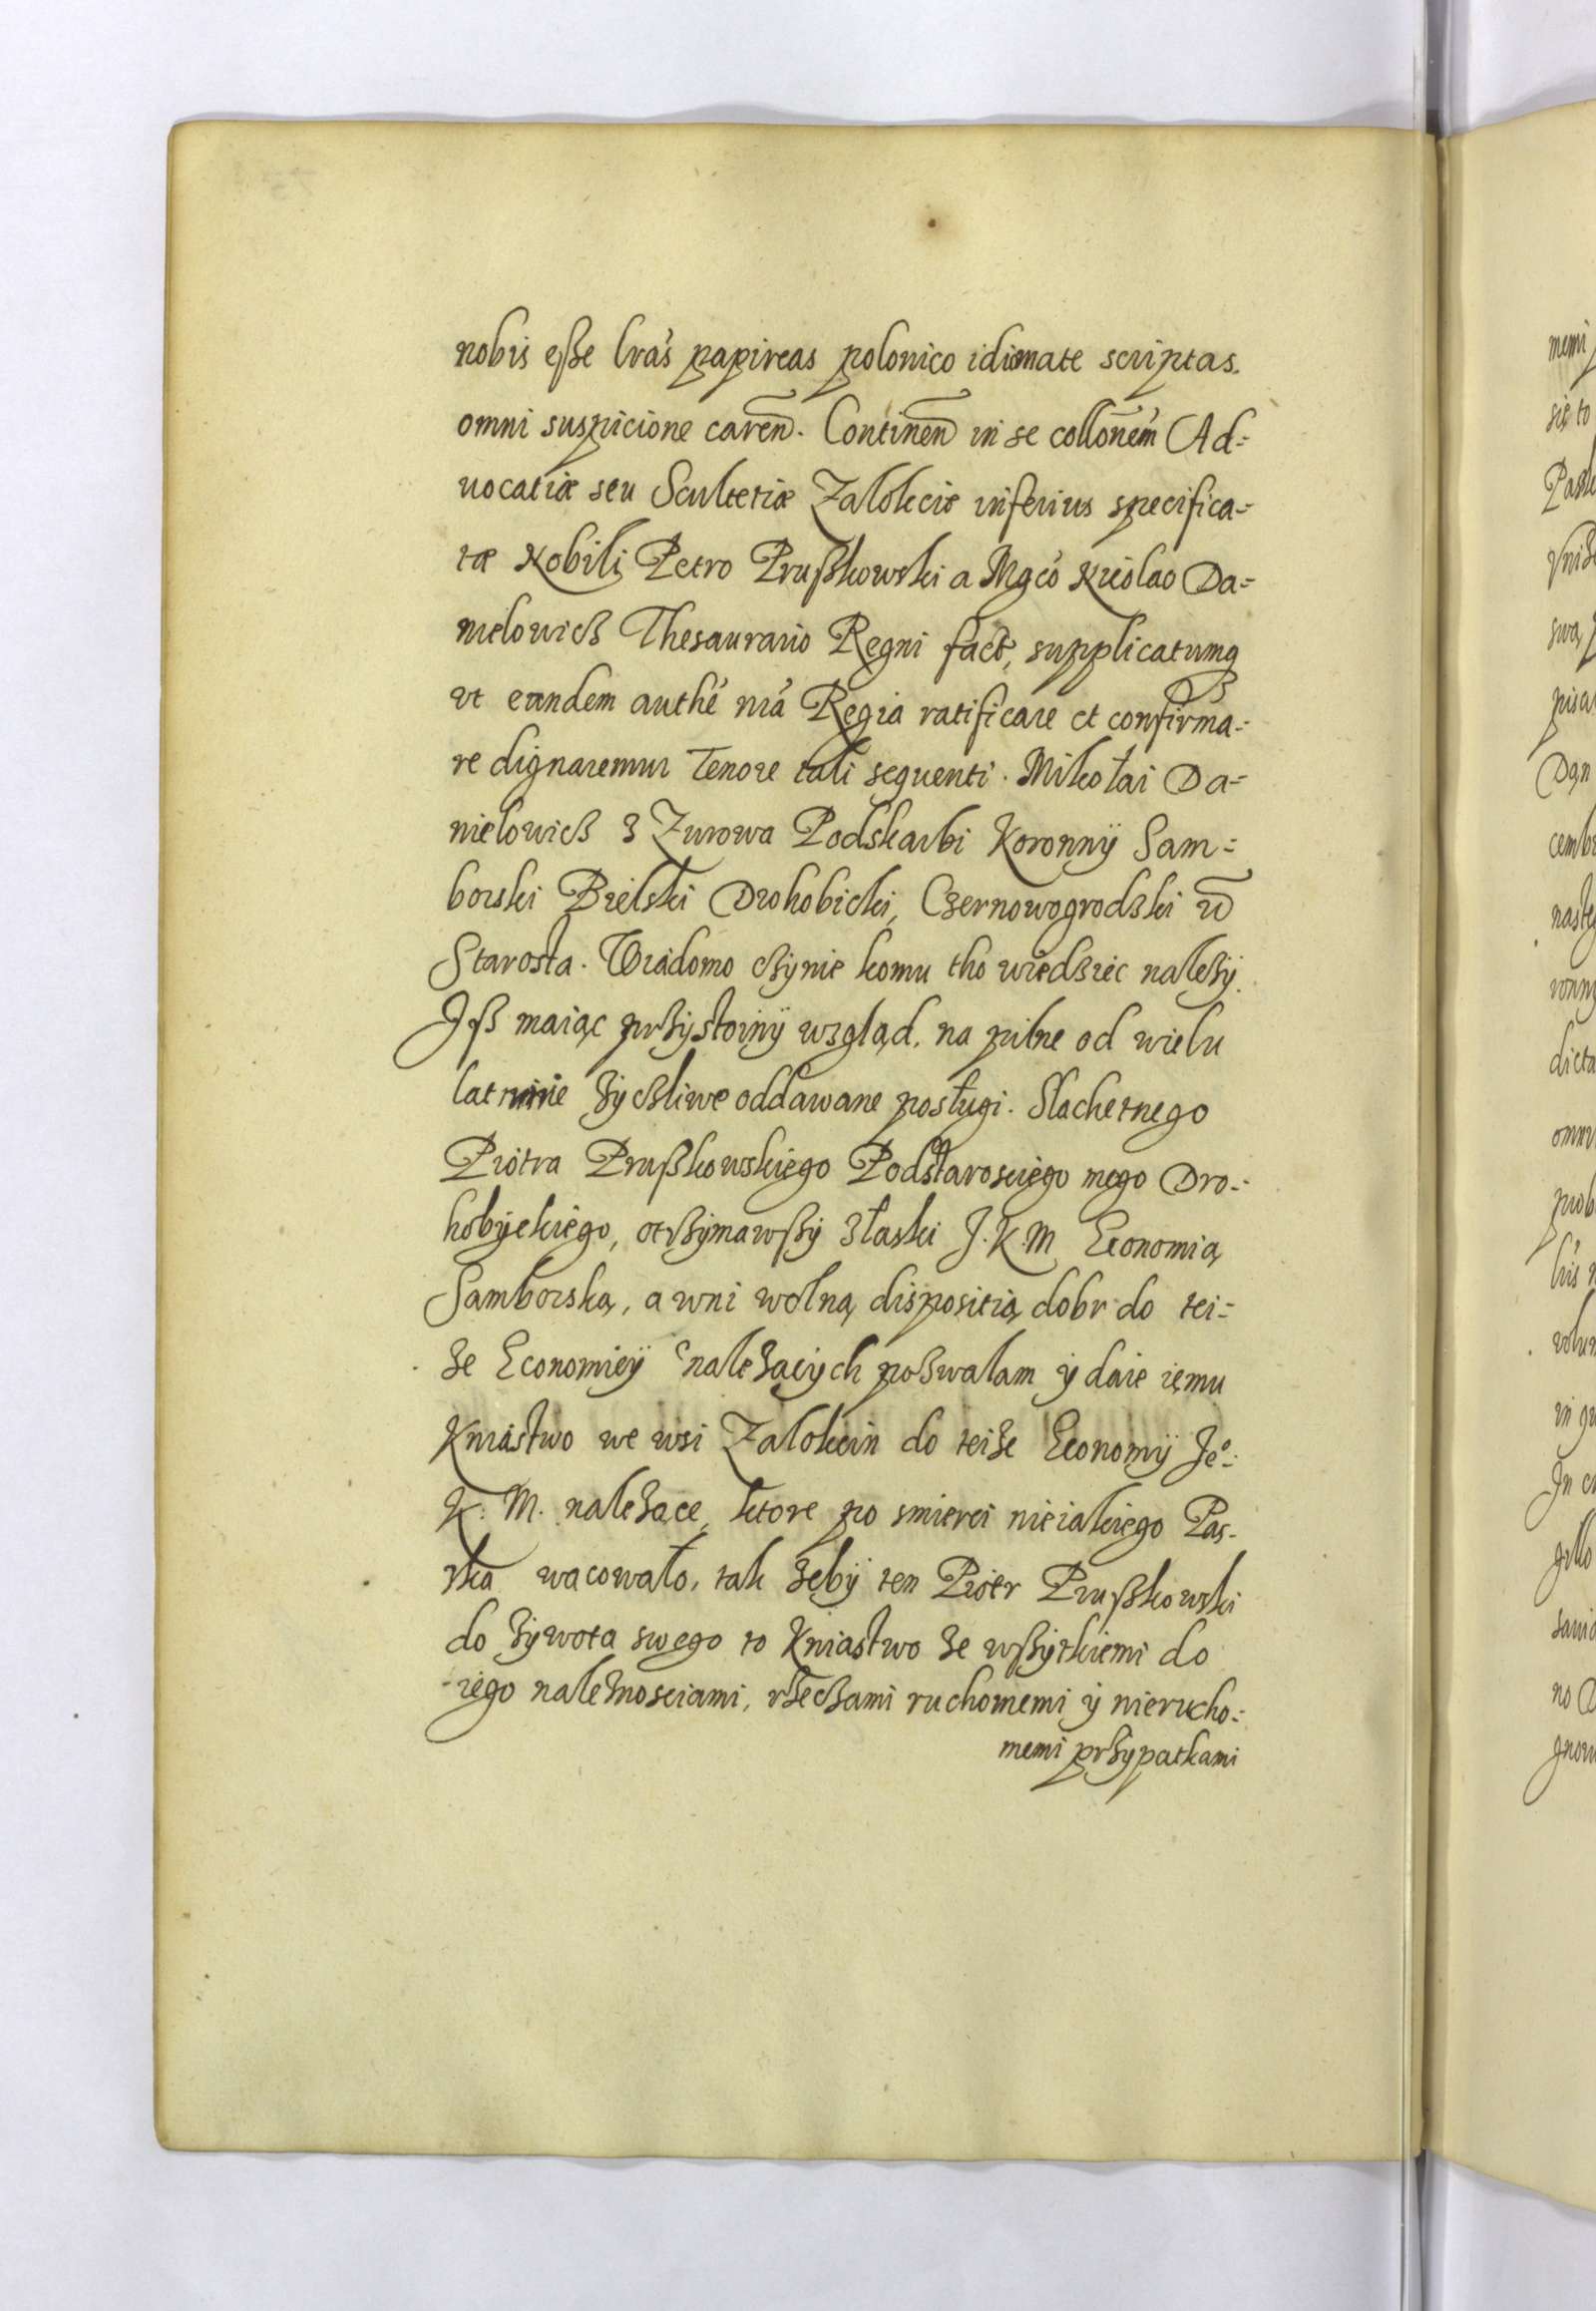 nobis eße lrás papireas polonico idiomate scriptas.
omni suspicione careñ. Contineñ in se collonem̃ Ad=
uocatiæ seu Scultetiæ Zalokcie inferius specifica=
tæ Nobili Petro Prußkowski a Mgcó Nicolao Da=
nielowicß Thesaurario Regni fact, supplicatumq
vt eandem authé nrá Regia ratificare et confirma=
re dignaremur Tenore tali sequenti. Mikołai Da=
nielowicß z Zurowa Podskarbi Koronnÿ Sam=
borski Bielski Drohobicki, Czernowogrodzki
Starosta. Wiadomo cżÿnie komu tho wiedżiec należÿ.
Jß maiąc prżÿstoinÿ wzgląd, na pilne od wielu
lat mnie żÿcżliwe oddawane posługi. Slachetnego
Piotra Prußkowskiego Podstarosciego mego Dro=
hobÿckiego, otrżÿmawßÿ złaski J. K. M Economią
Samborską, a wni wolną dispositią dobr do tei=
że Economieÿ należącÿch pozwalam ÿ daie iemu
Kniastwo we wsi Zalokcin do teiże Economÿ Jeº.
K. M. należące, ktore po smierci nieiakiego Pas-
ska wacowało, tak żebÿ ten Piotr Prußkowski
do żÿwota swego to Kniastwo ze wßÿtkiemi do
iego należnosciami, rżecżami ruchomemi ÿ nierucho=
memi prżÿpatkami